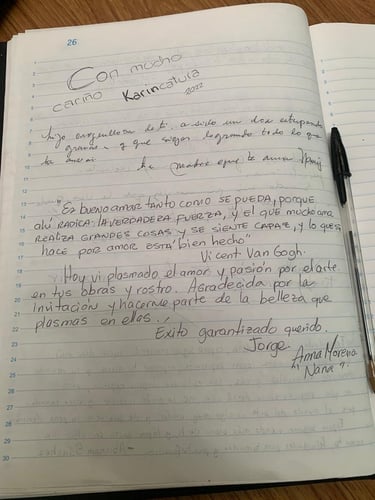 26
Con mucho
cariño Karincatura
2022
hijo orgullosa de ti. a sido un don estupendo
gracias, y que sigas logrando todo lo que
tu madre que te ama
"Es bueno amar tanto como se pueda, porque
ahí radica la verdadera fuerza, y el que mucho ama
realiza grandes cosas y se siente capaz, y lo que se
hace por amor está bien hecho"
Vicent Van Gogh.
Hoy vi plasmado el amor y pasión por el arte
en tus obras y rostro. Agradecida por la
invitación y hacerme parte de la belleza que
plasmas en ellas.
Exito garantizado querido.
Jorge.
Anna Moreno
"Nana".